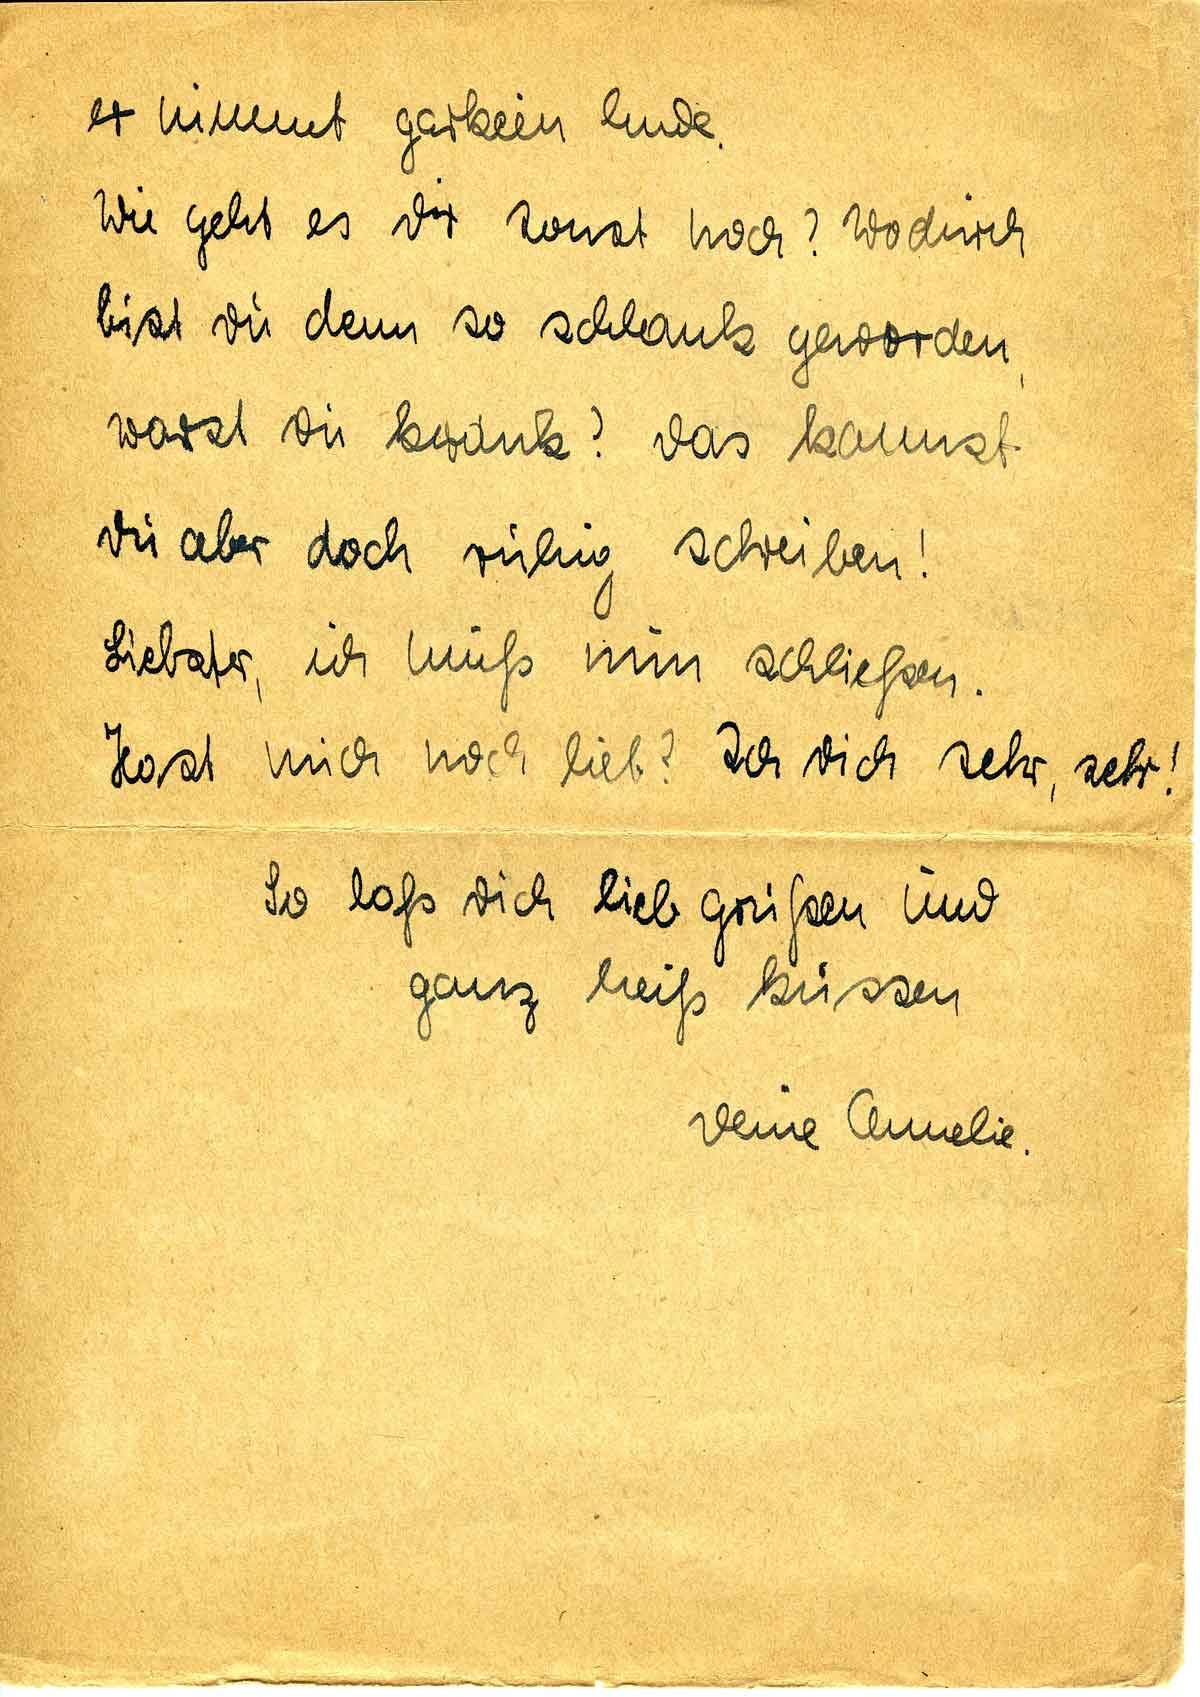 er nimmt garkein Ende.
Wie geht es Dir sonst noch? Wodurch
bist Du denn so schlank geworden,
warst Du krank? Das kannst
Du aber doch ruhig schreiben!
Liebster, ich muß nun schließen.
Hast mich noch lieb? Ich Dich sehr, sehr!
So laß Dich lieb grüßen und
ganz heiß küssen
Deine Annelie.